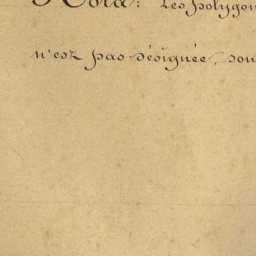 Nota: Les polygon
n'est pas désignée, son